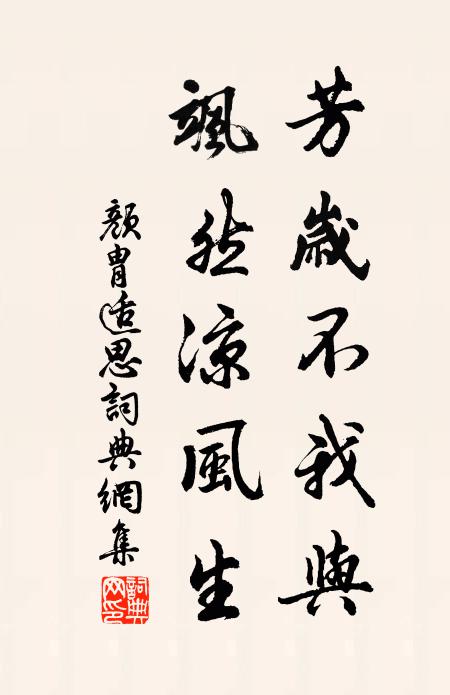 芳歲不我與
颯然涼風生
顏胄適思詞典網集
詞典网印